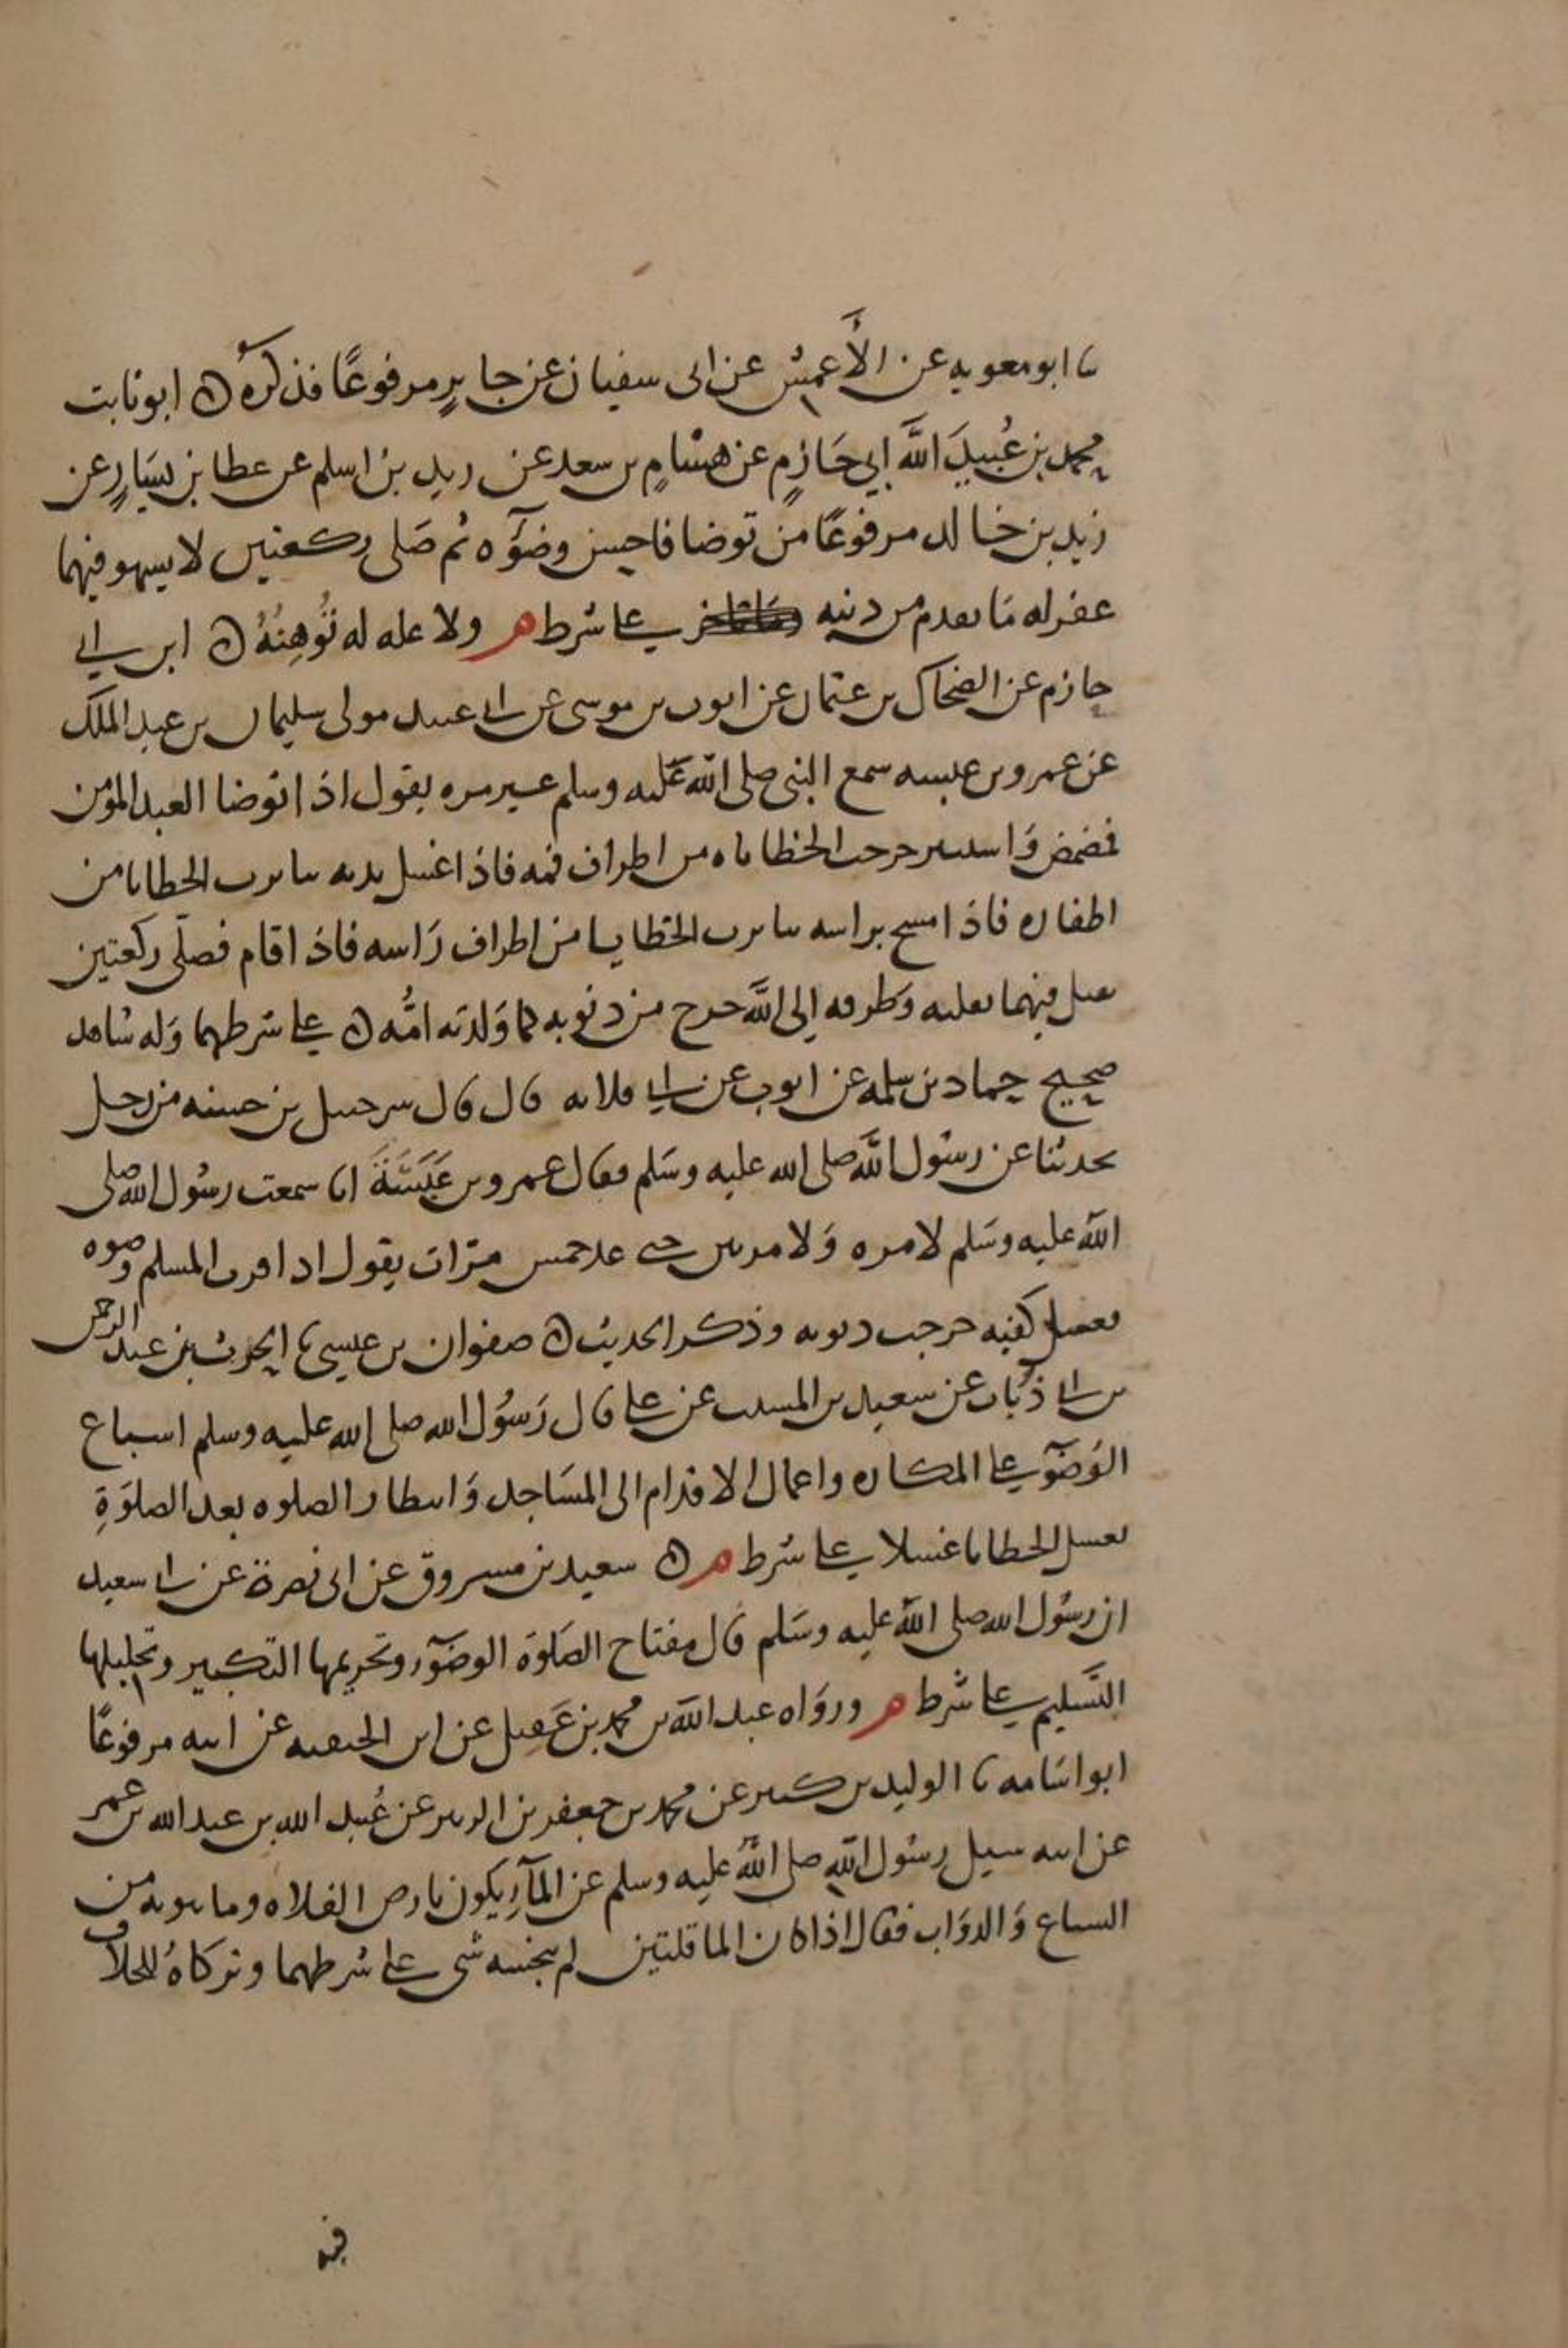 ثنا ابو معويه عن الأعمش عن ابى سفيان عن جابرٍ مرفوعًا فذكره ابو ثابت
محمد بن عُبيدَ اللَّه ابي حَازمٍ عن هشامٍ بن سعد عن زيد بن اسلم عن عطا بن يسَارٍ عن
زيد بن خالد مرفوعًا من توضا فاحسن وضوٓه ثم صَلى ركعتين لا يسهو فيهما
غفر له مَا تقدم من ذنبه على شرط م ولا علة له تُوهِنُهُ ابن ابي
حازم عن الضحاك بن عثمان عن ايوب بن موسى عن ابى عبيد مولى سليمان بن عبد الملك
عن عمرو بن عبسه سمع النبى صلى اللَّه عَليه وسلم غير مره يقول اذا توضا العبد المؤمن
فمضمض وَاستنثر خرجت الخطاياه من اطراف فمه فاذا غسل يديه تناثرت الخطايا من
اظفاره فاذا مسح براسه تناثرت الخطايا من اطراف رَاسه فاذا قام فصلّى ركعتين
يقبل فيهما بقلبه وَطرفه إلى اللَّه خرج من ذنوبه كما وَلدته امُّه على شرطهما وَله شاهد
صحيح حماد بن سلمه عن ايوب عن ابي قلابه قال قال شرحبيل بن حسنه من رجل
يحدثنا عن رسُول اللَّه صلى الله عليه وسَلم فقال عمرو بن عَبَسَةَ انا سمعت رسُول الله صلى
اللَّه عليه وسَلم لا مره وَلا مرتين حتى عد خمس مرّات يقول اذا قرب المسلم وضوه
فغسل كفيه خرجت ذنوبه وذكر الحديث صفوان بن عيسى ثنا الحرث بن عبد الرحمن
بن ابي ذُباب عن سعيد بن المسيب عن على قال رَسُول الله صلى الله عليه وسلم اسباغ
الوُضوٓ على المكاره واعمال الاقدام الى المسَاجد وَانتظار الصلوه بعد الصلوَةِ
يغسل الخطايا غسلا على شرط م سعيد بن مسروق عن ابى نضرة عن ابي سعيد
ان رسُول الله صلى اللَّه عليه وسَلم قال مفتاح الصَلوة الوضوٓ وتحريمها التكبير وتحليلها
التَّسليم على شرط م وروَاه عبد اللَّه بن محمد بن عَقيل عن ابن الحنفيه عن ابيه مرفوعًا
ابو اسَامه ثنا الوليد بن كثير عن محمد بن جعفر بن الزبير عن عُبيد الله بن عبد الله بن عمر
عن ابيه سيل رسُول اللَّه صلى اللَّه عليه وسلم عن المآء يكون بارض الفلاه وما ينوبه من
السباع وَالدوَاب فقال اذا كان الما قلتين لم ينجسه شى على شرطهما وتركاهُ للخلاف
فيه